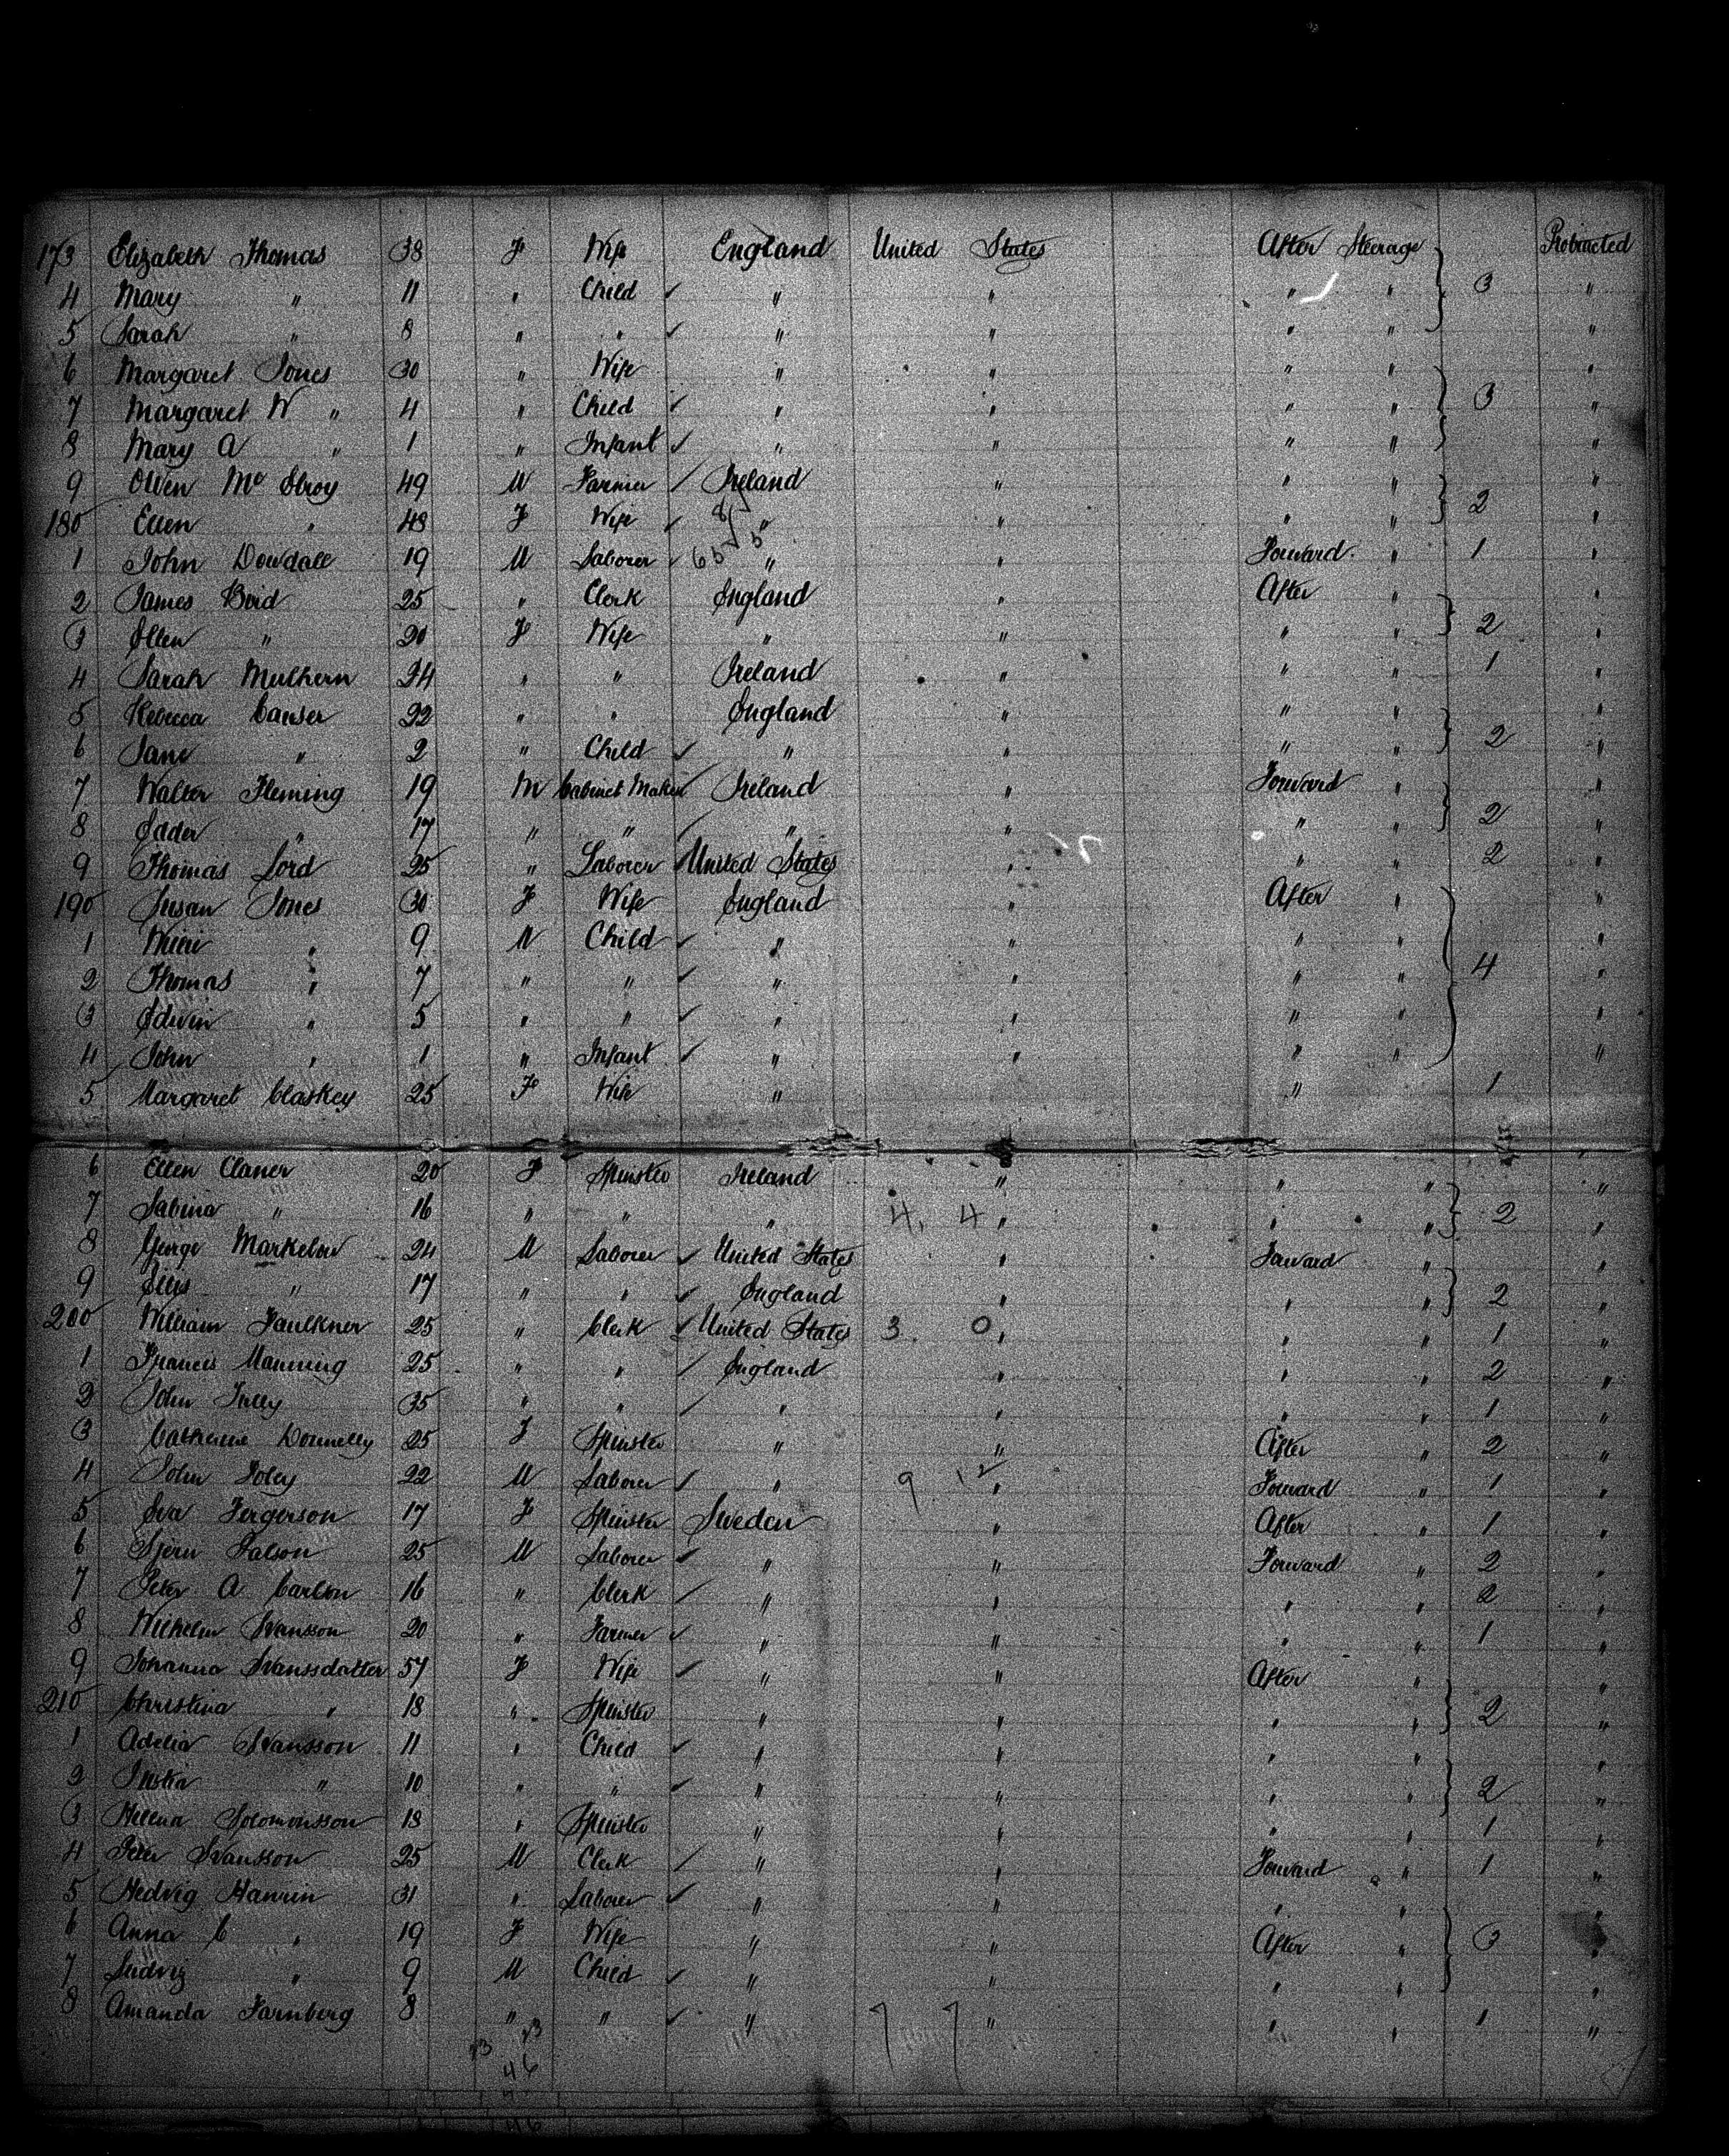 173 Elizabeth Thomas 38 F Wife England United States After Steerage Protracted
4 Mary " 11 " Child ✓ " " " " 3 "
5 Sarah " 8 " " ✓ " " " " "
6 Margaret Jones 30 " Wife " " " " "
7 Margaret W " 4 " Child ✓ " " " " 3 "
8 Mary A " 1 " Infant ✓ " " " " "
9 Owen Mc Elroy 49 M Farmer ✓ Ireland " " " "
180 Ellen " 48 F Wife ✓ " " " " 2 "
1 John Dowdall 19 M Laborer ✓ " " Forward " 1 "
2 James Bird 25 " Clerk England " After " "
3 Ellen " 20 F Wife " " " " 2 "
4 Sarah Mulhern 24 " " Ireland " " " 1 "
5 Rebecca Causer 22 " " England " " " "
6 Jane " 2 " Child ✓ " " " " 2 "
7 Walter Fleming 19 M Cabinet Maker ✓ Ireland " Forward " "
8 " 17 " " ✓ " " " " 2 "
9 Thomas Lord 25 " Laborer ✓ United States " " " 2 "
190 Susan Jones 30 F Wife England " After " "
1 " 9 M Child ✓ " " " " "
2 Thomas " 7 " " ✓ " " " " 4 "
3 Edwin " 5 " " ✓ " " " " "
4 John " 1 " Infant ✓ " " " " "
5 Margaret Claskey 25 F Wife " " 1
6 Ellen Claner 20 F Spinster Ireland " " " "
7 Sabina " 16 " " " 4, 4 " " " 2 "
8 George Markelow 24 M Laborer ✓ United States " Forward " "
9 " 17 " " ✓ England " " " 2 "
200 William Faulkner 25 " Clerk ✓ United States 3 0 " " " 1 "
1 Francis Manning 25 " " ✓ England " " " 2 "
2 John Tully 35 " " ✓ " " " " 1 "
3 Catherine Donnelly 25 F Spinster " " After " 2 "
4 John Foley 22 M Laborer ✓ " 9 12 " Forward " 1 "
5 Eva Fergerson 17 F Spinster Sweden " After " 1 "
6 25 M Laborer ✓ " " Forward " 2 "
7 Peter A Carlson 16 " Clerk ✓ " " " " 2 "
8 Wilhelm Svansson 20 " Farmer ✓ " " " " 1 "
9 Johanna Svanssdatter 57 F Wife ✓ " " After " "
210 Christina " 18 " Spinster " " " " 2 "
1 Adelia Svansson 11 " Child ✓ " " " " "
2 " 10 " " ✓ " " " " 2 "
3 Helena Solomonsson 18 " Spinster " " " " 1 "
4 Peter Svansson 25 M Clerk ✓ " " Forward " 1 "
5 Hedvig Hanrin 31 " Laborer ✓ " " " " "
6 Anna C " 19 F Wife " " After " 3 "
7 Ludvig " 9 M Child ✓ " " " " "
8 Amanda Farnberg 8 " " ✓ " 7 7 " " " 1 "
23 23
46